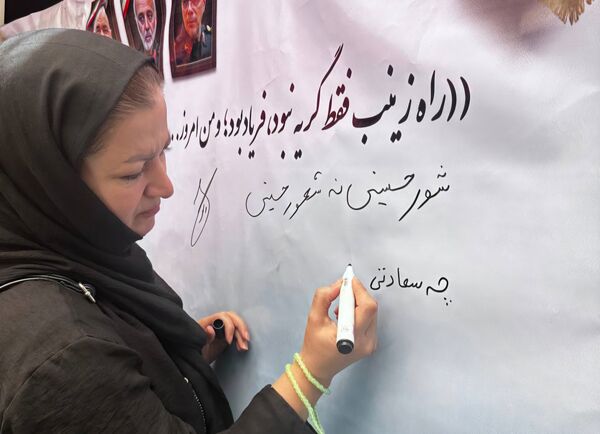 ((راه زینب فقط گریه نبود، فریاد بود؛ و من امروز...
شور حسینی نه شهور حسینی
چه سعادتی